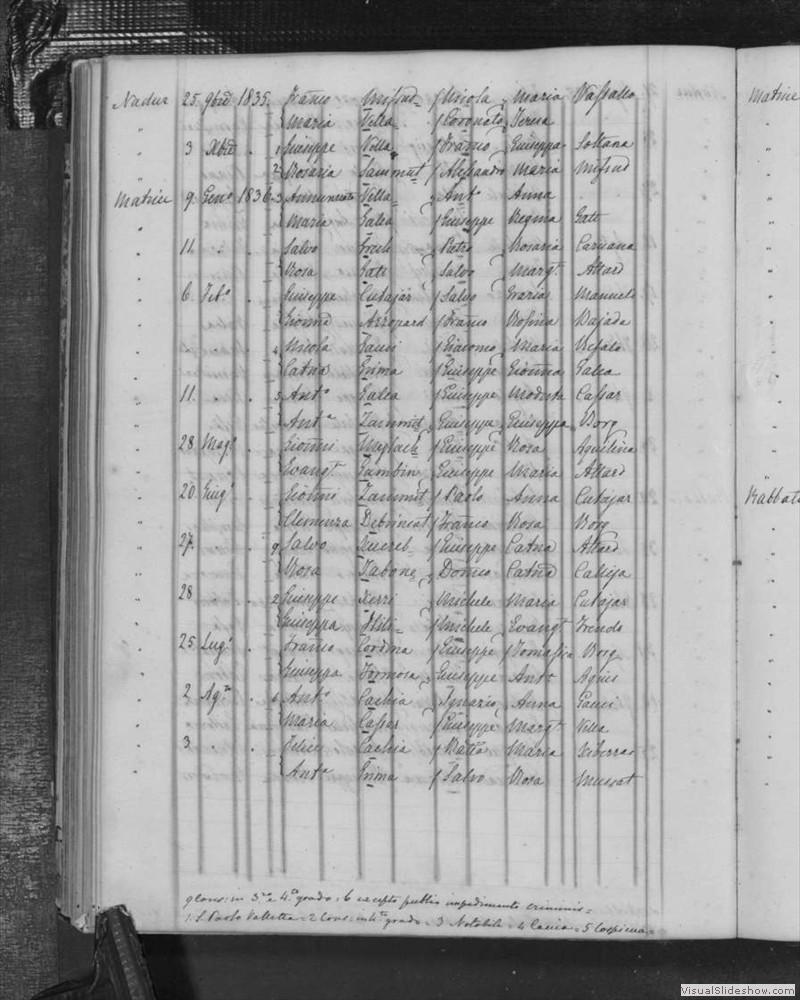 Nadur 25 9bre 1835 Franco Mifsud Nicola Maria Vassallo
" Maria Vella Coronato Teresa
" 3 Xbre . 1 Giuseppe Vella Franco Giuseppa Sultana
" 2 Rosaria Sammut Alessandro Maria Mifsud
Matrice 9 Geno 1836 3 Annunziato Villa Anto Anna
" Maria Galea Giuseppe Regina Gatt
" 11 . . Salvo Pietro Rosaria Caruana
" Rosa Gatt Salvo Margta Attard
" 6 Febo . Giuseppe Cutajar Salvo Grazia
" Franco Rosina Bajada
" " . . 4 Nicola Fauci Giacomo Maria Refalo
" Catna Grima Giuseppe Gionna Galea
" 11 . . 5 Anto Galea Giuseppe Modesta Cassar
" Anta Zammit Giuseppe Giuseppa Borg
" 28 Mago . Gionni Giuseppe Rosa Aquilina
" Evangta Giuseppe Maria Attard
" 20 Giugo . Gionni Zammit Paolo Anna Cutajar
" Clemenza Debrincat Franco Rosa Borg
" 27 . . 9 Salvo Xuereb Giuseppe Catna Attard
" Rosa Tabone Domco Catna Calleja
" 28 . . 2 Giuseppe Xerri Michele Maria Cutajar
" Giuseppa Michele Evangta
" 25 Lugo . Franco Cordina Giuseppe Tomasica Borg
" Giuseppa Formosa Giuseppe Anta Agius
" 2 Ago . 6 Anto Cachia Ignazio Anna Fauci
" Maria Cassar Giuseppe Margta Villa
" 3 . . Felice Cachia Batta Maria Xiberras
" Anta Grima Salvo Rosa Mussat
9 Cons: in 3zo e 4to grado = 6 excepto public impedimento criminis =
1. S. Paolo Valletta = 2 Cons: in 4to grado = 3 Notabile = 4 Caccia = 5 Cospicua =
Matrice
Rabbato
VisualSlideshow.com